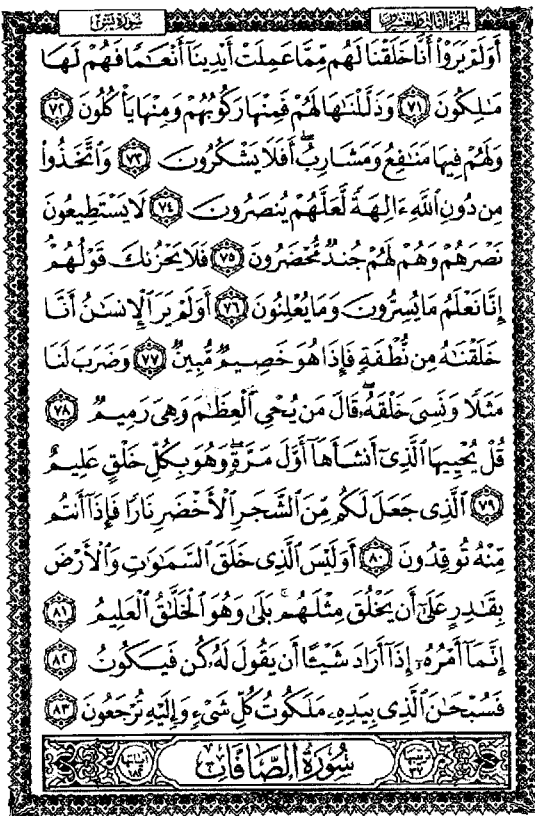 سُورَةُ يسٓ
الجزء الثالث والعشرون
أَوَلَمْ يَرَوْا۟ أَنَّا خَلَقْنَا لَهُم مِّمَّا عَمِلَتْ أَيْدِينَآ أَنْعَٰمًا فَهُمْ لَهَا
مَٰلِكُونَ ٧١ وَذَلَّلْنَٰهَا لَهُمْ فَمِنْهَا رَكُوبُهُمْ وَمِنْهَا يَأْكُلُونَ ٧٢
وَلَهُمْ فِيهَا مَنَٰفِعُ وَمَشَارِبُ ۖ أَفَلَا يَشْكُرُونَ ٧٣ وَٱتَّخَذُوا۟
مِن دُونِ ٱللَّهِ ءَالِهَةً لَّعَلَّهُمْ يُنصَرُونَ ٧٤ لَا يَسْتَطِيعُونَ
نَصْرَهُمْ وَهُمْ لَهُمْ جُندٌ مُّحْضَرُونَ ٧٥ فَلَا يَحْزُنكَ قَوْلُهُمْ ۘ
إِنَّا نَعْلَمُ مَا يُسِرُّونَ وَمَا يُعْلِنُونَ ٧٦ أَوَلَمْ يَرَ ٱلْإِنسَٰنُ أَنَّا
خَلَقْنَٰهُ مِن نُّطْفَةٍ فَإِذَا هُوَ خَصِيمٌ مُّبِينٌ ٧٧ وَضَرَبَ لَنَا
مَثَلًا وَنَسِىَ خَلْقَهُۥ ۖ قَالَ مَن يُحْىِ ٱلْعِظَٰمَ وَهِىَ رَمِيمٌ ٧٨
قُلْ يُحْيِيهَا ٱلَّذِىٓ أَنشَأَهَآ أَوَّلَ مَرَّةٍ ۖ وَهُوَ بِكُلِّ خَلْقٍ عَلِيمٌ
٧٩ ٱلَّذِى جَعَلَ لَكُم مِّنَ ٱلشَّجَرِ ٱلْأَخْضَرِ نَارًا فَإِذَآ أَنتُم
مِّنْهُ تُوقِدُونَ ٨٠ أَوَلَيْسَ ٱلَّذِى خَلَقَ ٱلسَّمَٰوَٰتِ وَٱلْأَرْضَ
بِقَٰدِرٍ عَلَىٰٓ أَن يَخْلُقَ مِثْلَهُم ۚ بَلَىٰ وَهُوَ ٱلْخَلَّٰقُ ٱلْعَلِيمُ ٨١
إِنَّمَآ أَمْرُهُۥٓ إِذَآ أَرَادَ شَيْـًٔا أَن يَقُولَ لَهُۥ كُن فَيَكُونُ ٨٢
فَسُبْحَٰنَ ٱلَّذِى بِيَدِهِۦ مَلَكُوتُ كُلِّ شَىْءٍ وَإِلَيْهِ تُرْجَعُونَ ٨٣
سُورَةُ الصَّافَّاتِ